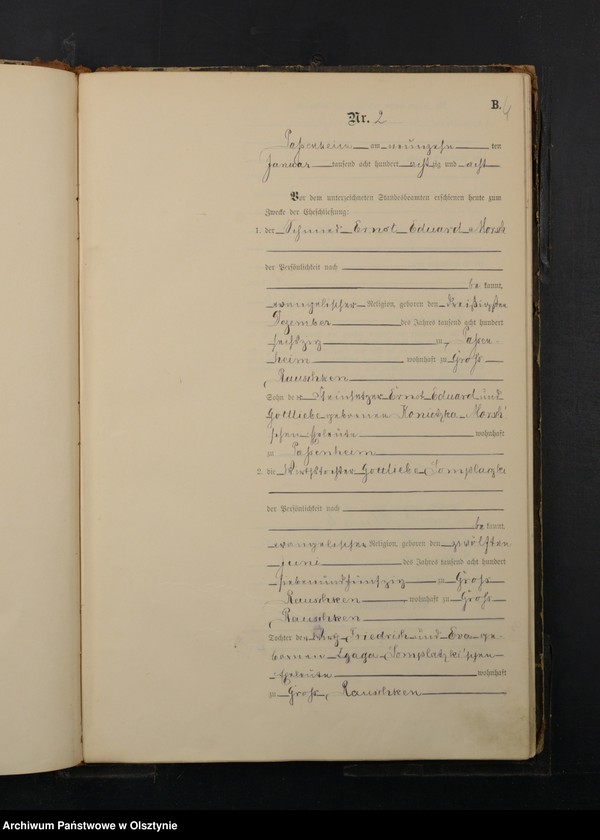 B.
Nr. 2
Passenheim am neunzehn ten
Januar tausend acht hundert achtzig und acht
Vor dem unterzeichneten Standesbeamten erschienen heute zum
Zwecke der Eheschließung:
1. der Schmied Ernst Eduard Morsch
der Persönlichkeit nach
be kannt,
evangelischer Religion, geboren den dreißigsten
Dezember des Jahres tausend acht hundert
sechszig zu Passen-
heim, wohnhaft zu Groß
Rauschken
Sohn des Steinsetzer Ernst Eduard und
Gottliebe geborenen Konietzka Morsch'
schen Eheleute wohnhaft
zu Passenheim
2. die Wirthstochter Gottliebe Somplatzki
der Persönlichkeit nach
be kannt,
evangelischer Religion, geboren den zwölften
Juni des Jahres tausend acht hundert
siebenundfünfzig zu Groß
Rauschken, wohnhaft zu Groß
Rauschken
Tochter der Friedrich und Eva ge-
borenen Somplatzki'schen
Eheleute wohnhaft
zu Groß Rauschken
Archiwum Państwowe w Olsztynie